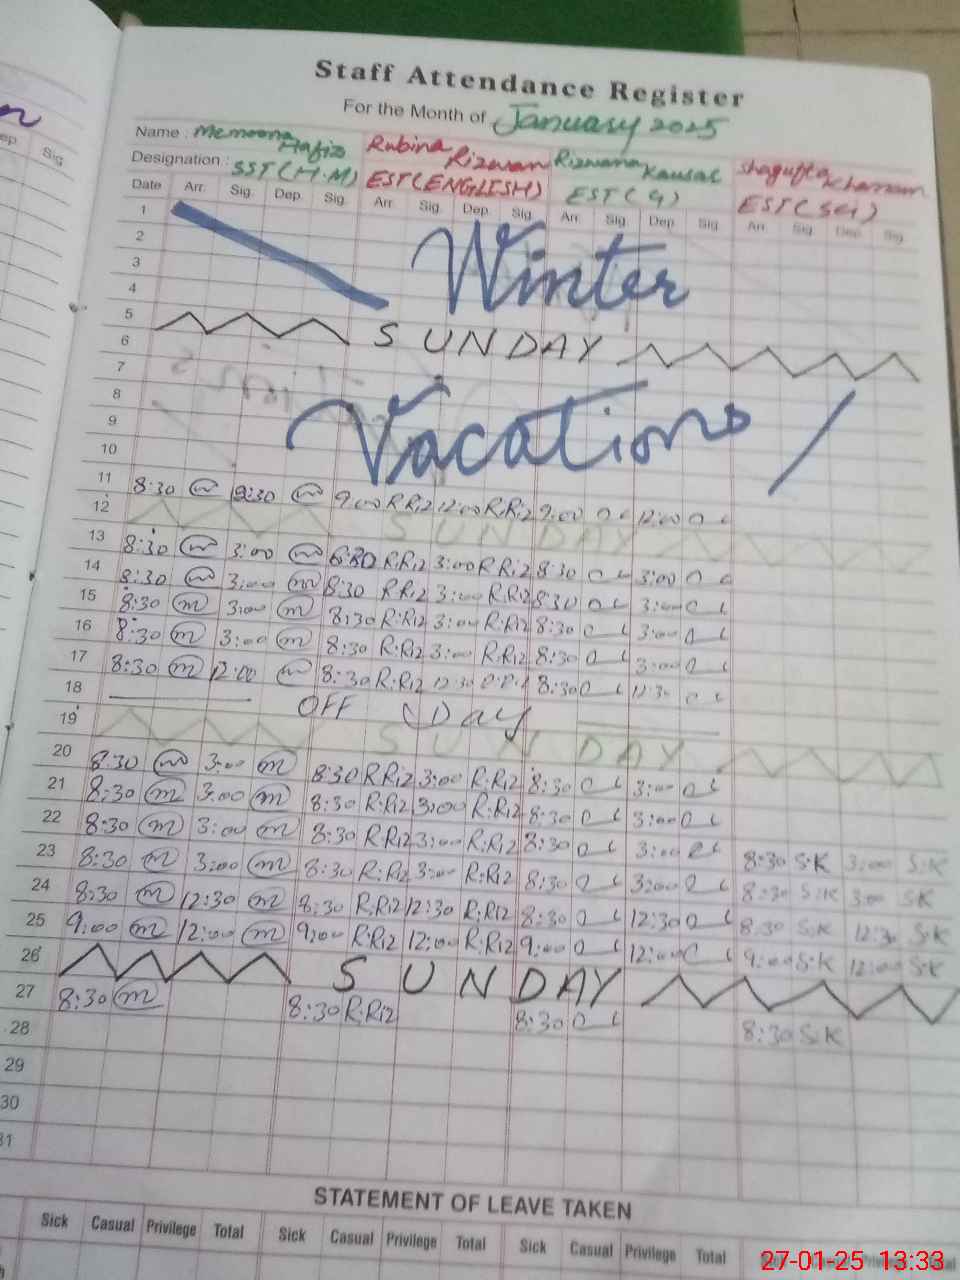 Staff Attendance Register
For the Month of January 2025
Name : Memoona Hafiz Rubina Rizwan Rizwana Kausar Shagufta Khanam
Designation : SST (H.M) EST (ENGLISH) EST (G) EST (SCI)
Date Arr. Sig. Dep. Sig. Arr. Sig. Dep. Sig. Arr. Sig. Dep. Sig. Arr. Sig. Dep. Sig.
1
2 Winter
3
4
5 SUNDAY
6
7
8
9 Vacations
10
11 8:30 9:30 9:00 R.Riz 12:00 R.Riz 9:00 12:00
12 SUNDAY
13 8:30 3:00 8:30 R.Riz 3:00 R.Riz 8:30 3:00
14 8:30 3:00 m 8:30 R.Riz 3:00 R.Riz 8:30 3:00
15 8:30 m 3:00 m 8:30 R:Riz 3:00 R:Riz 8:30 3:00
16 8:30 m 3:00 m 8:30 R:Riz 3:00 R.Riz 8:30 3:00
17 8:30 m 12:00 8:30 R:Riz 12:30 8:30 12:30
18 OFF Day
19 SUNDAY
20 8:30 3:00 m 8:30 R.Riz 3:00 R.Riz 8:30 3:00
21 8:30 m 3:00 m 8:30 R:Riz 3:00 R:Riz 8:30 3:00
22 8:30 m 3:00 m 8:30 R.Riz 3:00 R.Riz 8:30 3:00
23 8:30 m 3:00 m 8:30 R:Riz 3:00 R:Riz 8:30 3:00 8:30 S.K 3:00 S.K
24 8:30 m 12:30 m 8:30 R.Riz 12:30 R.Riz 8:30 12:30 8:30 S.K 3:00 S.K
25 9:00 m 12:00 m 9:00 R.Riz 12:00 R.Riz 9:00 12:00 8:30 S.K 12:30 S.K
9:00 S.K 12:00 S.K
26 SUNDAY
27 8:30 m 8:30 R:Riz 8:30 8:30 S.K
28
29
30
31
STATEMENT OF LEAVE TAKEN
Sick Casual Privilege Total Sick Casual Privilege Total Sick Casual Privilege Total Sick Casual Privilege Total
27-01-25 13:33